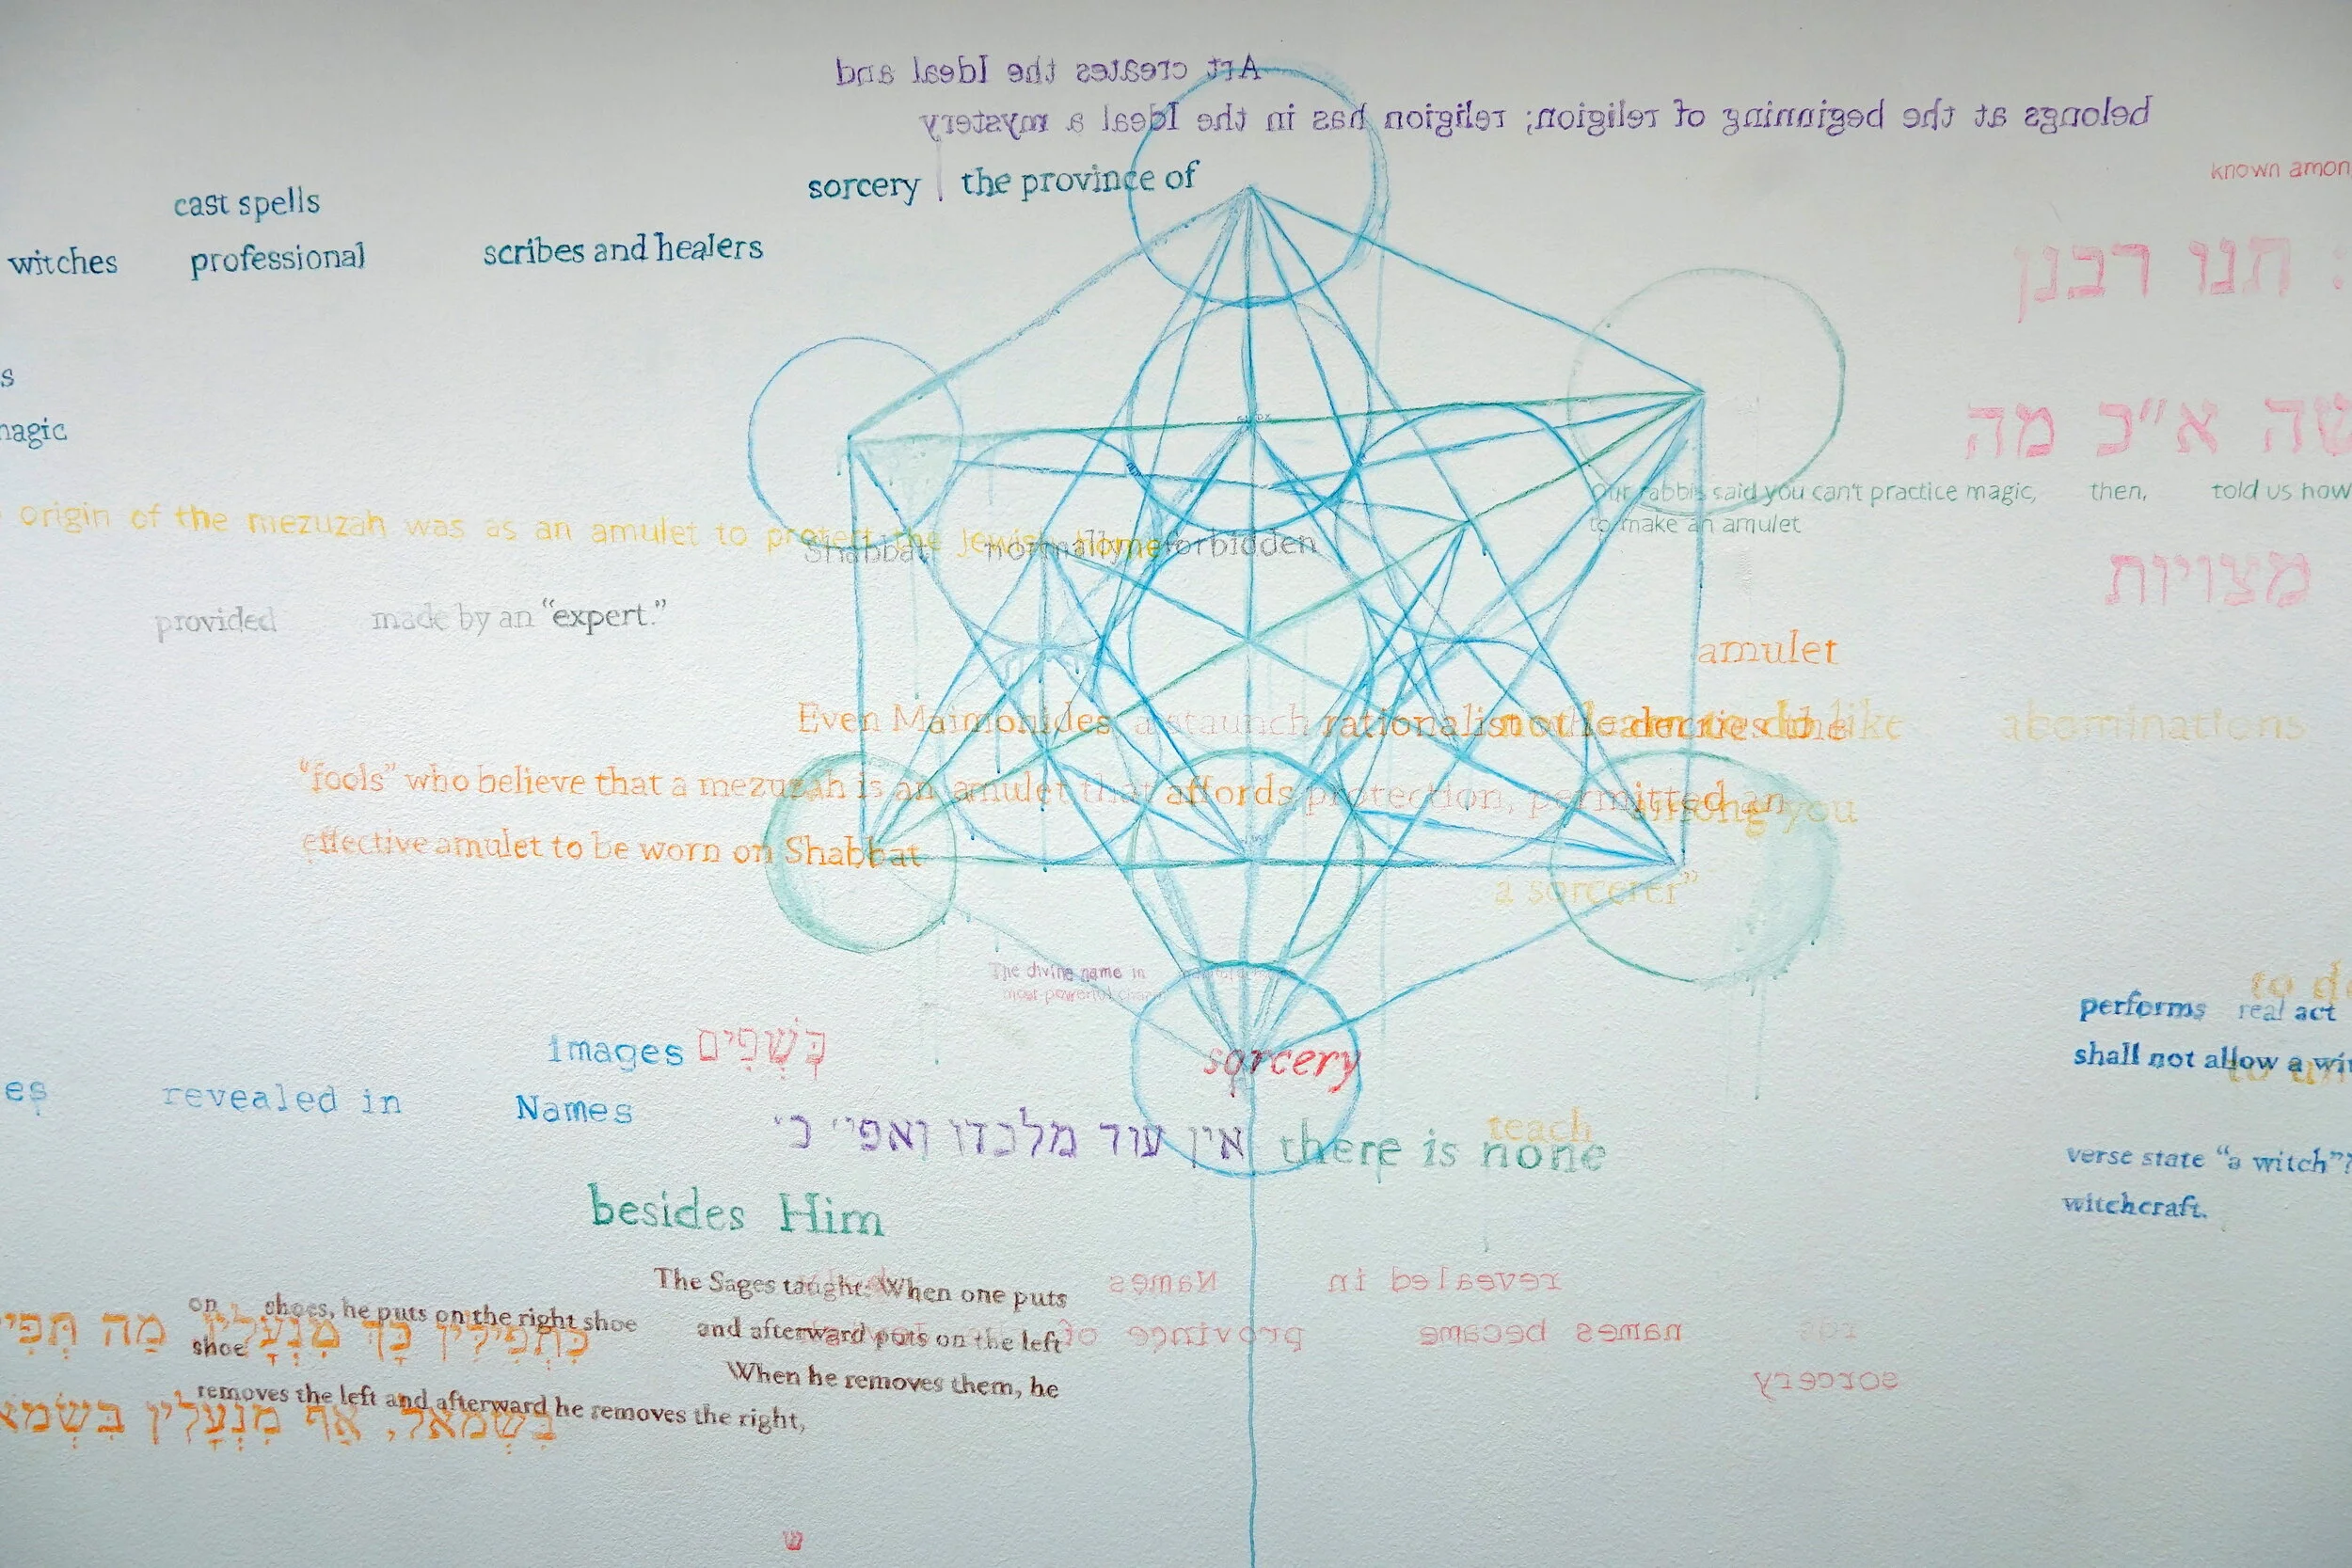 Art creates the Ideal and
belongs at the beginning of religion; religion has in the Ideal a mystery
known amon
sorcery the province of
cast spells
witches professional scribes and healers
: תנו רבנן
s
agic
שה א״כ מה
Our rabbis said you can't practice magic, then, told us how
to make an amulet
origin of the mezuzah was as an amulet to protect the Jewish home
Shabbat normally forbidden
מצויות
provided made by an “expert.”
amulet
Even Maimonides, a staunch rationalist who decries the
not learn to do like abominations
“fools” who believe that a mezuzah is an amulet that affords protection, permitted an
among you
effective amulet to be worn on Shabbat
a sorcerer”
The divine name in
most powerful
to d
performs real act
images כְּשָׁפִים
sorcery
shall not allow a wit
es revealed in Names
אין עוד מלבדו ואפי׳ כ׳ there is none
teach
verse state “a witch”?
besides Him
witchcraft.
The Sages taught: When one puts
on shoes, he puts on the right shoe and afterward puts on the left
shoe When he removes them, he
removes the left and afterward he removes the right,
כִּתְפִילִּין כָּךְ מִנְעָלִין מַה תְּפִי
בִּשְׂמֹאל, אַף מִנְעָלִין בִּשְׂמֹא
revealed in Names
names became province of
sorcery
ש